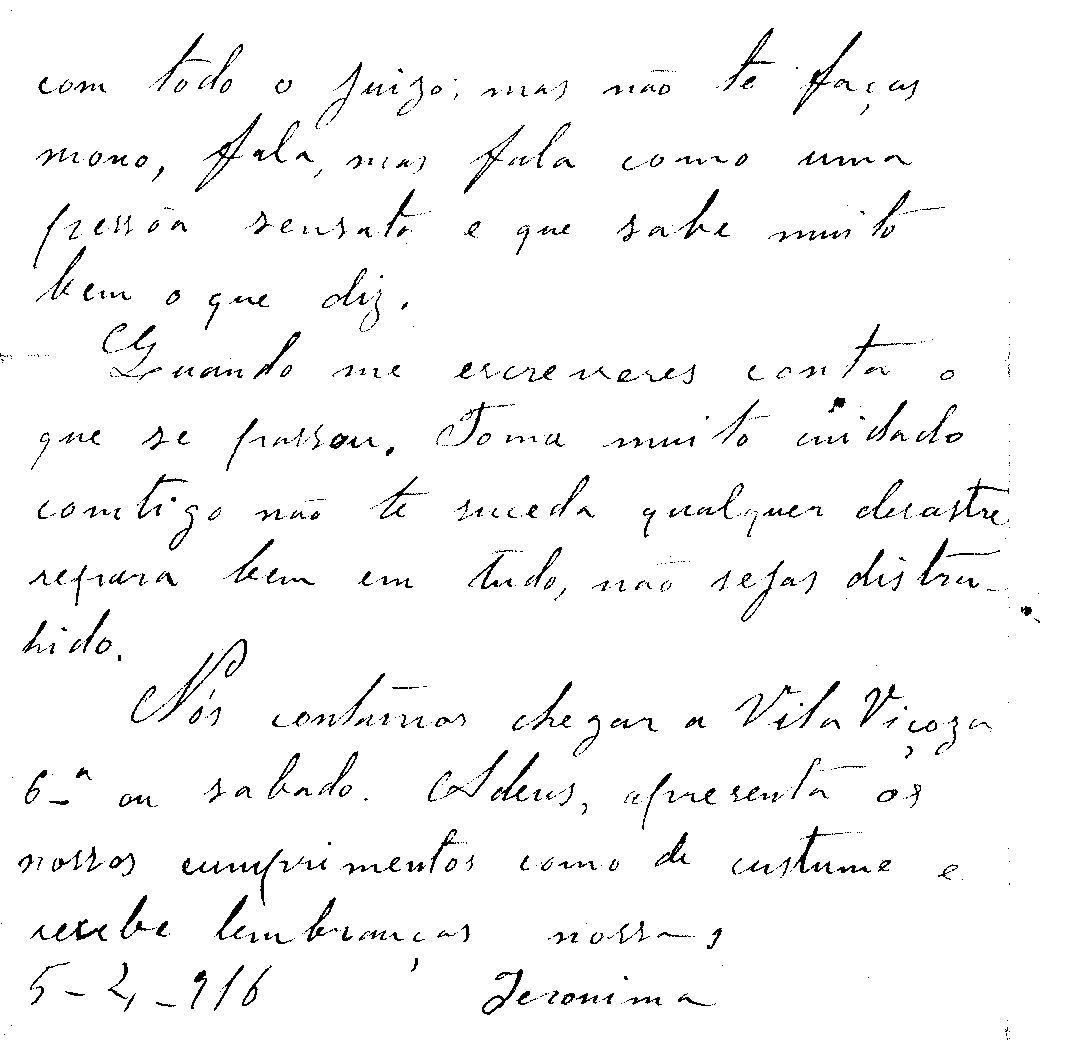 com todo o juizo; mas não te faças
mono, fala, mas fala como uma
pessôa sensata e que sabe muito
bem o que diz.
Quando me escreveres conta o
que se passou. Toma muito cuidado
comtigo não te suceda qualquer desastre
repara bem em tudo, não sejas distra-
hido.
Nós contamos chegar a Vila Viçoza
6-ª ou sabado. Adeus, apresenta os
nossos cumprimentos como de custume e
recebe lembranças nossas
5-4-916 Jeronima